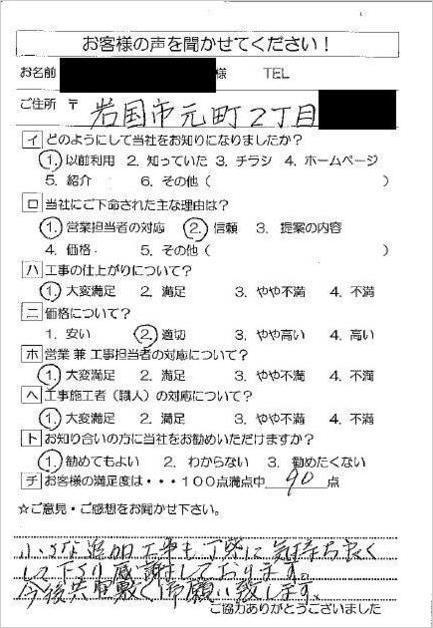 お客様の声を聞かせてください！
お名前 様 TEL
ご住所 〒 岩国市元町2丁目
イ どのようにして当社をお知りになりましたか？
1. 以前利用 2. 知っていた 3. チラシ 4. ホームページ
5. 紹介 6. その他（ ）
ロ 当社にご下命された主な理由は？
1. 営業担当者の対応 2. 信頼 3. 提案の内容
4. 価格 5. その他（ ）
ハ 工事の仕上がりについて？
1. 大変満足 2. 満足 3. やや不満 4. 不満
ニ 価格について？
1. 安い 2. 適切 3. やや高い 4. 高い
ホ 営業 兼 工事担当者の対応について？
1. 大変満足 2. 満足 3. やや不満 4. 不満
ヘ 工事施工者（職人）の対応について？
1. 大変満足 2. 満足 3. やや不満 4. 不満
ト お知り合いの方に当社をお勧めいただけますか？
1. 勧めてもよい 2. わからない 3. 勧めたくない
チ お客様の満足度は・・・100点満点中 90 点
☆ご意見・ご感想をお聞かせ下さい。
小さな追加工事も丁寧に気持ち良く
して下さり感謝しております。
今後共宜敷く御願い致します。
ご協力ありがとうございました